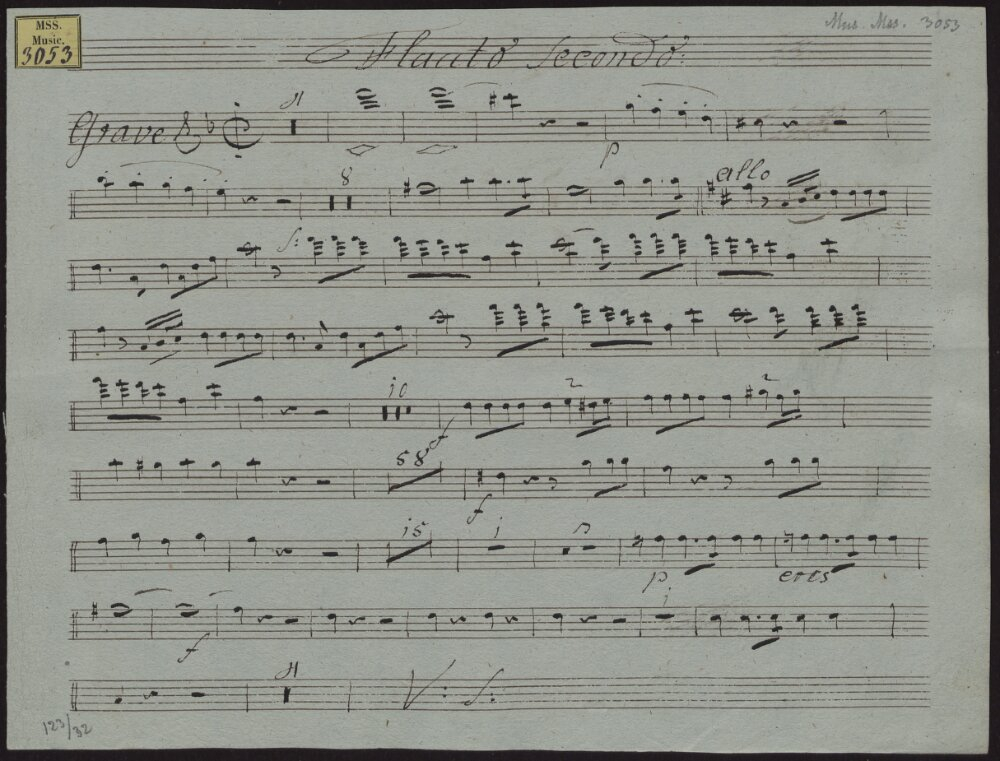 MSS.
Music.
3053
Mus. Mss. 3053
Flauto Secondo:
Grave
p
8
allo
10
2
2
f
58
f
15
1
p
cres
f
1
V: S:
123/32